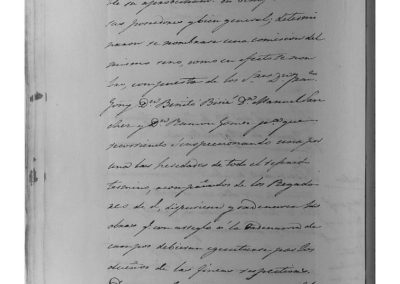 de su aprovechamto. en
sus poseedores y bien general; determi
naron se nombrase una comision del
mismo seno, como en efecto se nom
bro, compuesta de los Sres. Dn.
Dn. Benito Dn. Manuel San
chez y Dn. Ramon Gomez pa. que
recorriendo é inspeccionando una por
una las heredades de todo el
termino, acompañados de los Regado
res de él, dispusieran y ordenaran las
obras qe. con arreglo á la Ordenanza de
campos debieran ejecutarse por los
dueños de las fincas respectivas.